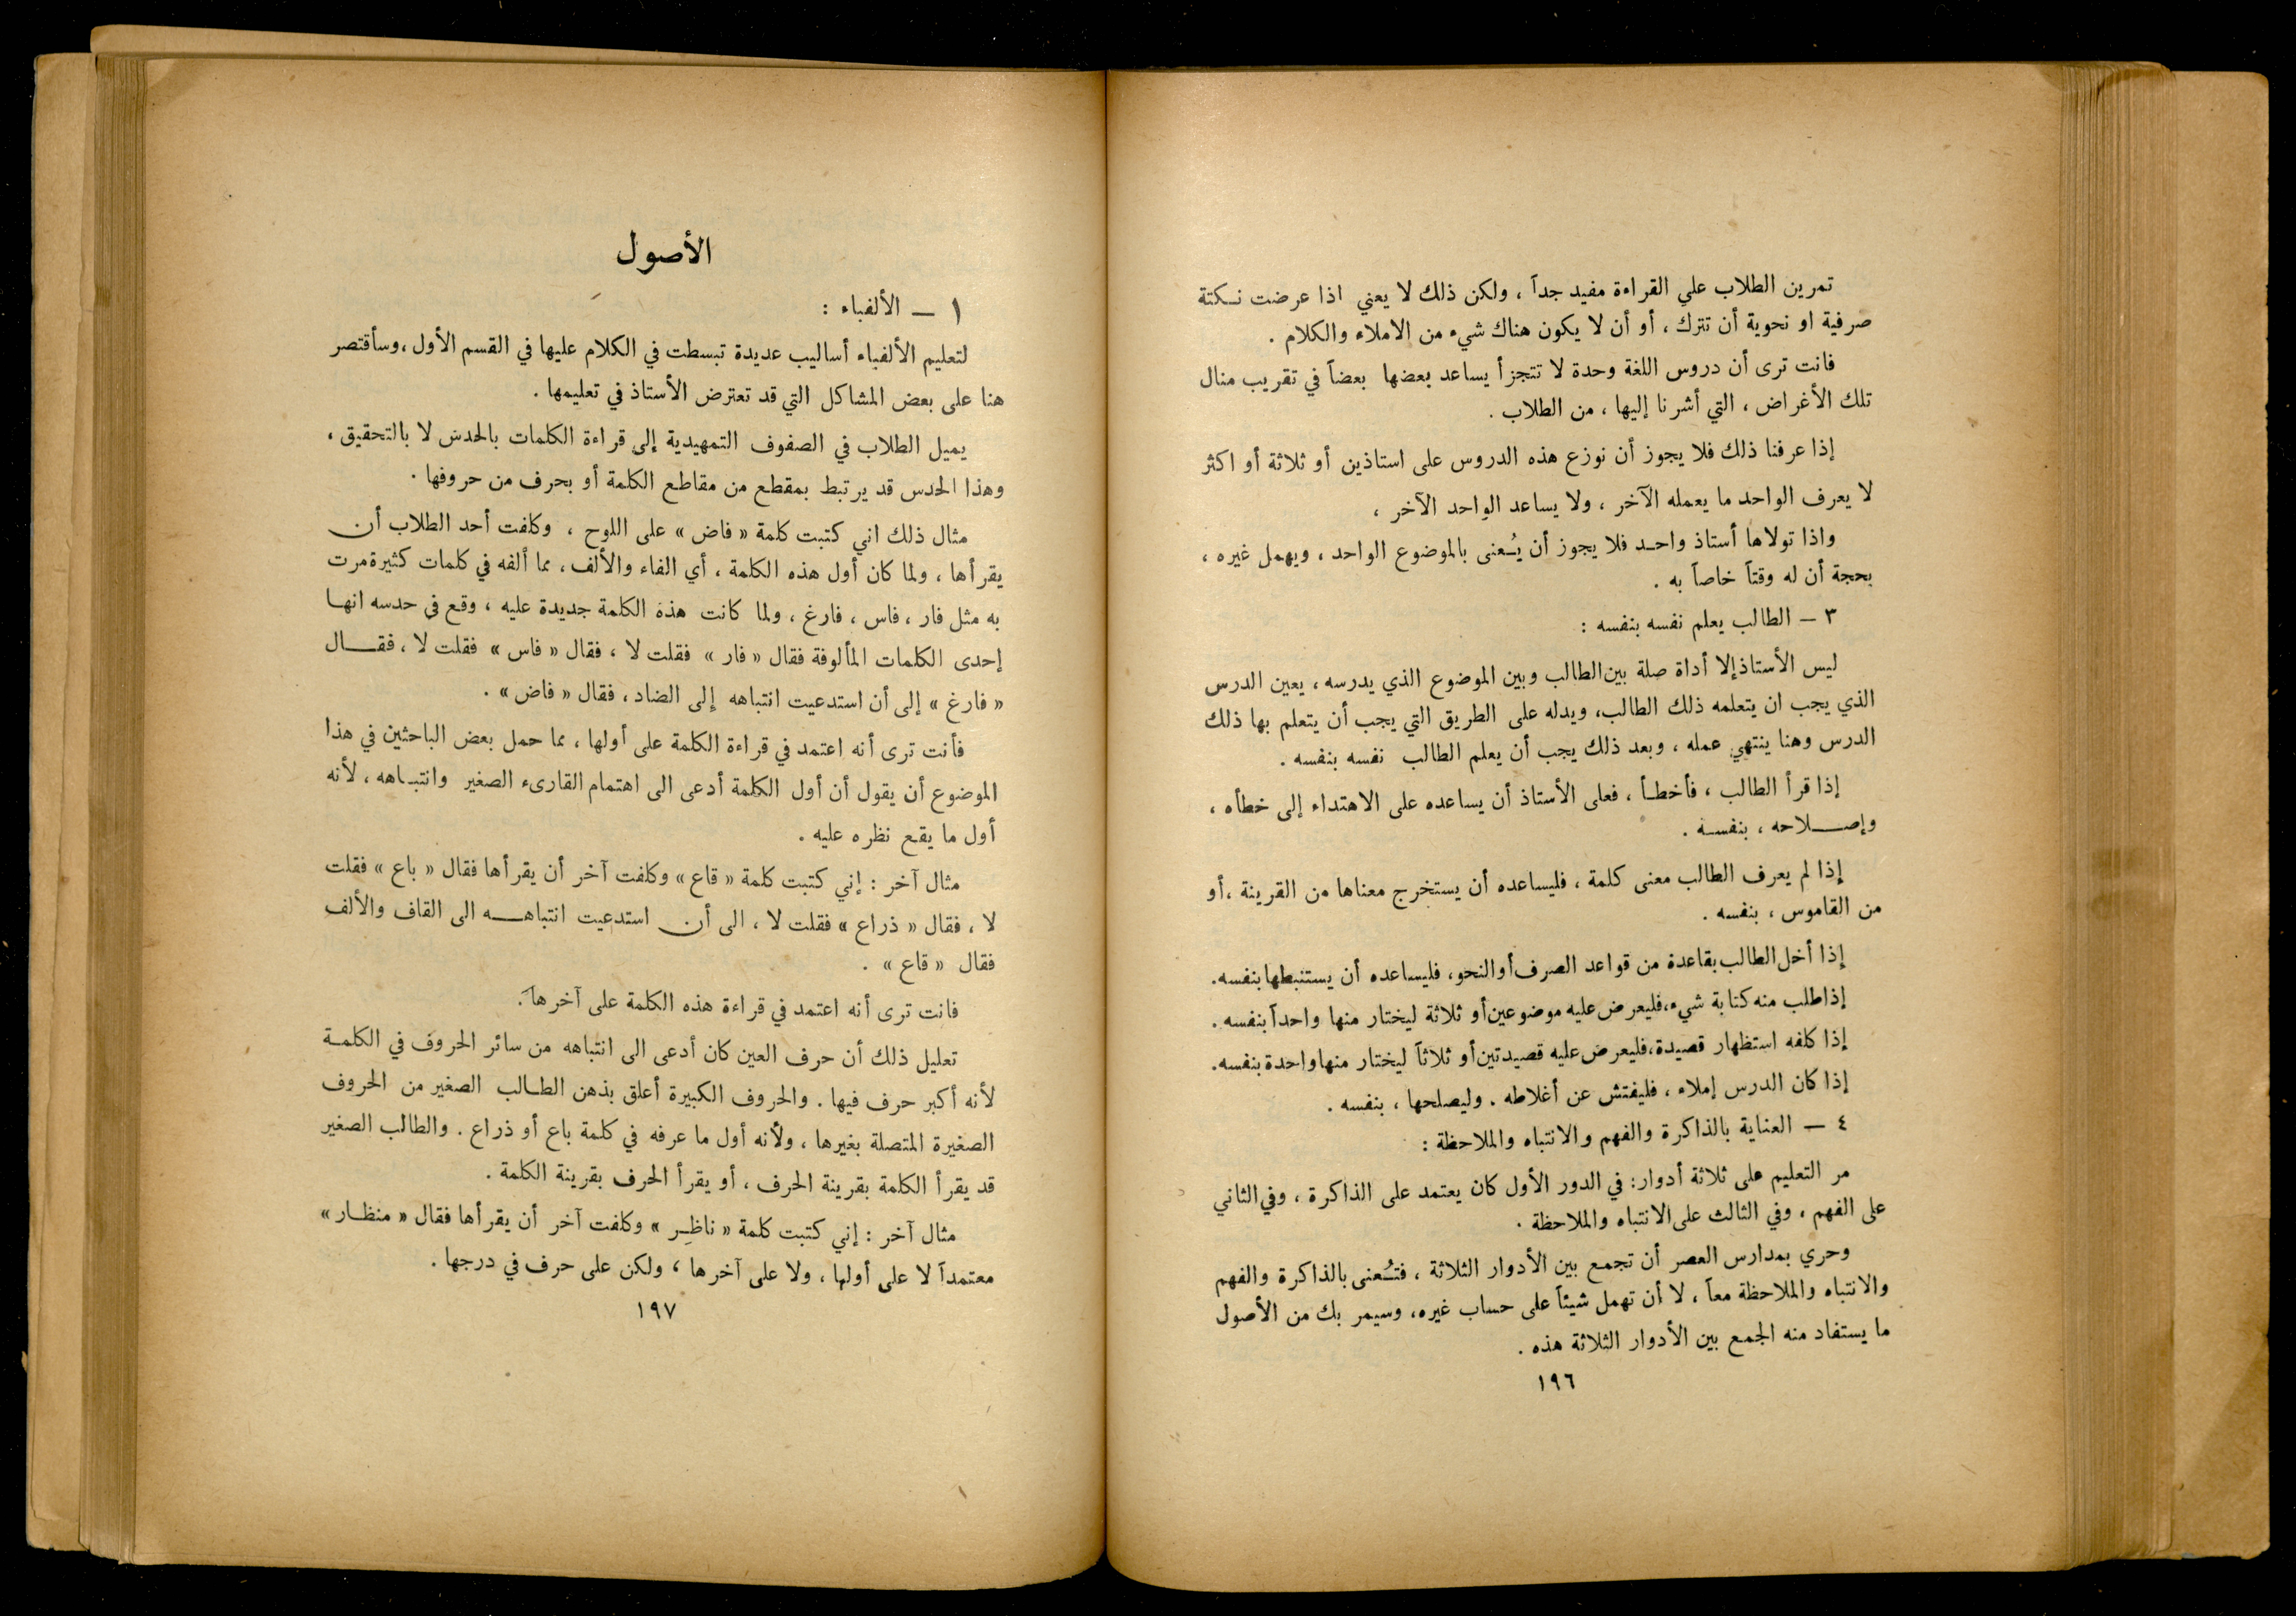 تمرين الطلاب على القراءة مفيد جداً ، ولكن ذلك لا يعني اذا عرضت نكتة
صرفية او نحوية أن تترك ، أو أن لا يكون هناك شيء من الاملاء والكلام .
فانت ترى أن دروس اللغة وحدة لا تتجزأ يساعد بعضها بعضاً في تقريب منال
تلك الأغراض ، التي أشرنا إليها ، من الطلاب .
إذا عرفنا ذلك فلا يجوز أن نوزع هذه الدروس على استاذين أو ثلاثة أو اكثر
لا يعرف الواحد ما يعمله الآخر ، ولا يساعد الواحد الآخر ،
واذا تولاها أستاذ واحد فلا يجوز أن يُعنى بالموضوع الواحد ، ويهمل غيره ،
بحجة أن له وقتاً خاصاً به .
٣ – الطالب يعلم نفسه بنفسه :
ليس الأستاذ إلا أداة صلة بين الطالب وبين الموضوع الذي يدرسه ، يعين الدرس
الذي يجب ان يتعلمه ذلك الطالب، ويدله على الطريق التي يجب أن يتعلم بها ذلك
الدرس وهنا ينتهي عمله ، وبعد ذلك يجب أن يعلم الطالب نفسه بنفسه .
إذا قرأ الطالب ، فأخطأ ، فعلى الأستاذ أن يساعده على الاهتداء إلى خطأه ،
وإصلاحه ، بنفسه .
إذا لم يعرف الطالب معنى كلمة ، فليساعده أن يستخرج معناها من القرينة ،أو
من القاموس ، بنفسه .
إذا أخل الطالب بقاعدة من قواعد الصرف أو النحو، فليساعده أن يستنبطها بنفسه.
إذا طلب منه كتابة شيء،فليعرض عليه موضوعين أو ثلاثة ليختار منها واحداً بنفسه .
إذا كلفه استظهار قصيدة،فليعرض عليه قصيدتين أو ثلاثاً ليختار منها واحدة بنفسه.
إذا كان الدرس إملاء ، فليفتش عن أغلاطه . وليصلحها ، بنفسه .
٤ – العناية بالذاكرة والفهم والانتباه والملاحظة :
مر التعليم على ثلاثة أدوار: في الدور الأول كان يعتمد على الذاكرة ، وفي الثاني
على الفهم ، وفي الثالث على الانتباه والملاحظة .
وحري بمدارس العصر أن تجمع بين الأدوار الثلاثة ، فتُعنى بالذاكرة والفهم
والانتباه والملاحظة معاً ، لا أن تهمل شيئاً على حساب غيره، وسيمر بك من الأصول
ما يستفاد منه الجمع بين الأدوار الثلاثة هذه .
١٩٦
الأصول
١ – الألفباء :
لتعليم الألفباء أساليب عديدة تبسطت في الكلام عليها في القسم الأول ،وسأقتصر
هنا على بعض المشاكل التي قد تعترض الأستاذ في تعليمها .
يميل الطلاب في الصفوف التمهيدية إلى قراءة الكلمات بالحدس لا بالتحقيق ،
وهذا الحدس قد يرتبط بمقطع من مقاطع الكلمة أو بحرف من حروفها .
مثال ذلك اني كتبت كلمة « فاض » على اللوح ، وكلفت أحد الطلاب أن
يقرأها ، ولما كان أول هذه الكلمة ، أي الفاء والألف ، مما ألفه في كلمات كثيرة مرت
به مثل فار ، فاس ، فارغ ، ولما كانت هذه الكلمة جديدة عليه ، وقع في حدسه انها
إحدى الكلمات المألوفة فقال « فار » فقلت لا ، فقال « فاس » فقلت لا ، فقال
« فارغ » إلى أن استدعيت انتباهه إلى الضاد ، فقال « فاض » .
فأنت ترى أنه اعتمد في قراءة الكلمة على أولها ، مما حمل بعض الباحثين في هذا
الموضوع أن يقول أن أول الكلمة أدعى الى اهتمام القارىء الصغير وانتباهه ، لأنه
أول ما يقع نظره عليه .
مثال آخر : إني كتبت كلمة « قاع » وكلفت آخر أن يقرأها فقال « باع » فقلت
لا ، فقال « ذراع » فقلت لا ، الى أن استدعيت انتباهه الى القاف والألف
فقال « قاع » .
فانت ترى أنه اعتمد في قراءة هذه الكلمة على آخرها .
تعليل ذلك أن حرف العين كان أدعى الى انتباهه من سائر الحروف في الكلمة
لأنه أكبر حرف فيها . والحروف الكبيرة أعلق بذهن الطالب الصغير من الحروف
الصغيرة المتصلة بغيرها ، ولأنه أول ما عرفه في كلمة باع أو ذراع . والطالب الصغير
قد يقرأ الكلمة بقرينة الحرف ، أو يقرأ الحرف بقرينة الكلمة .
مثال آخر : إني كتبت كلمة « ناظِر » وكلفت آخر أن يقرأها فقال « منظار »
معتمداً لا على أولها ، ولا على آخرها ، ولكن على حرف في درجها .
١٩٧